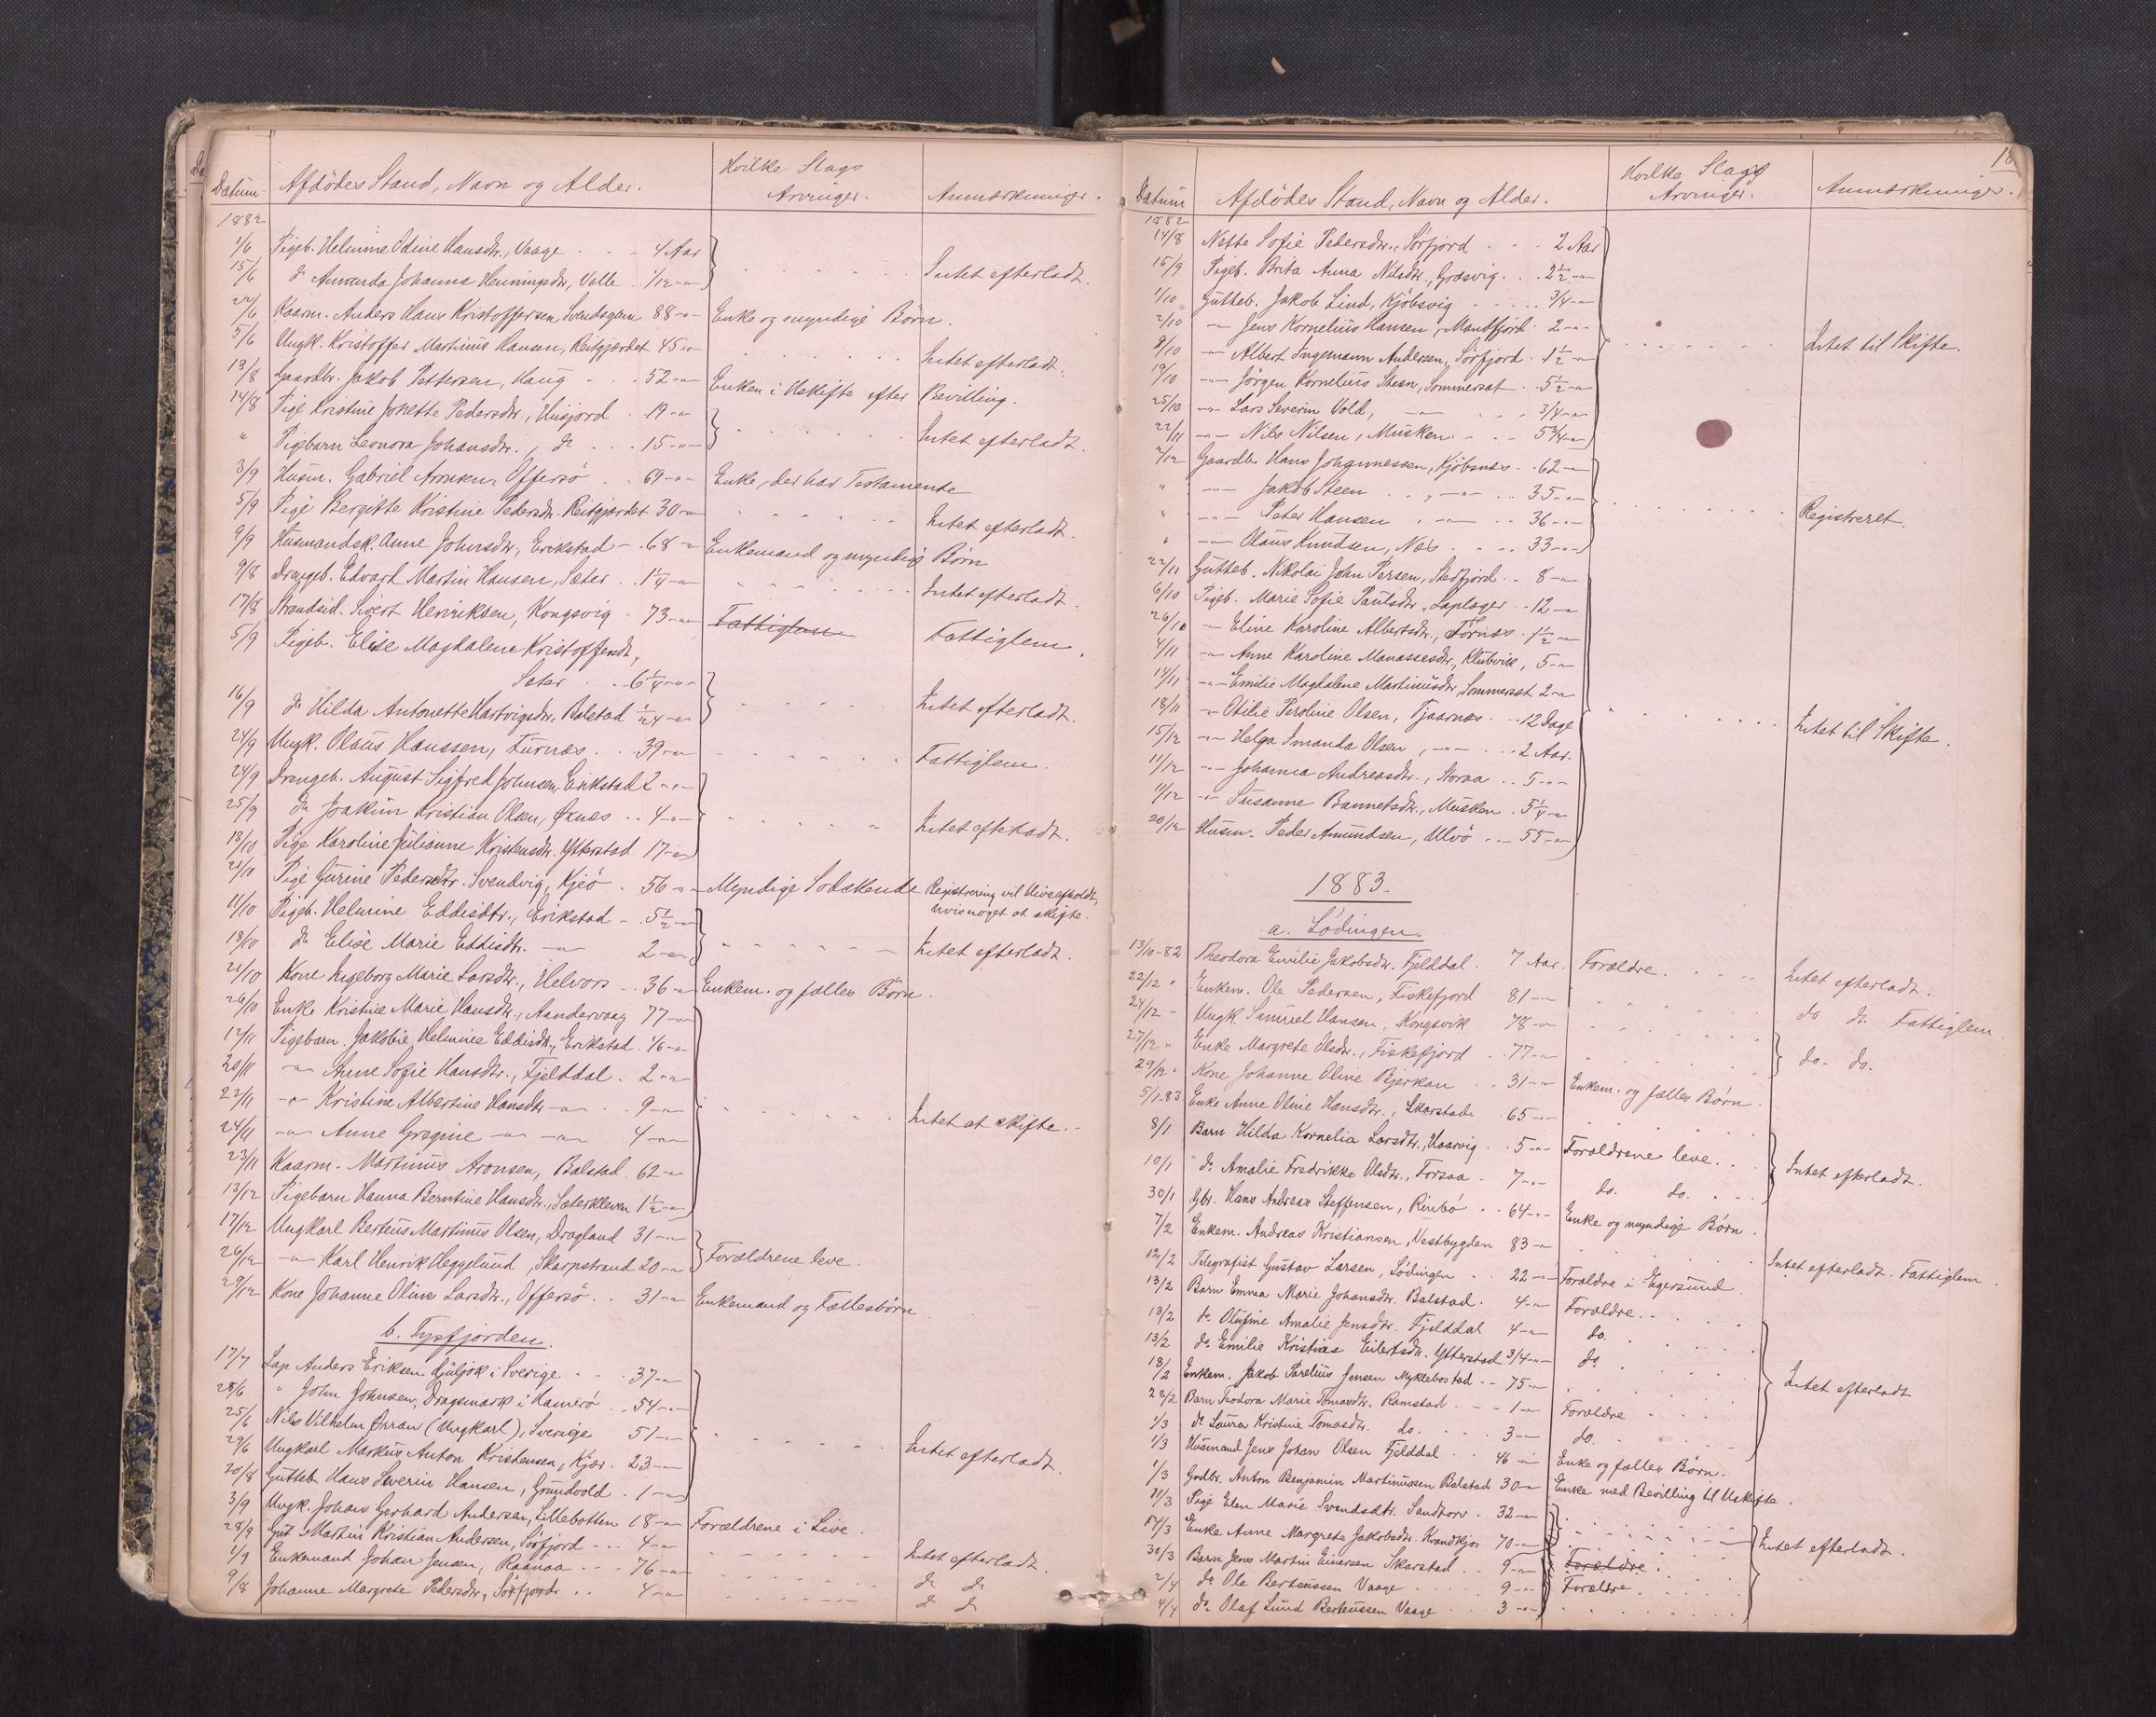 Datum. Afdödes Stand, Navn og Alder. Hvilke Slags Arvinger. Anmærkninger.
1882
1/6 Pigeb. Helmine Odine Hansdtr., Vaage 4 Aar
15/6 do Amanda Johanna Henningsdr, Valle 1/12 -"- Intet efterladt.
22/6 Kaarm. Anders Hans Kristoffersen, Svendsgam 88 -"- Enke og myndige Børn.
5/6 Ungk. Kristoffer Martinus Hansen, Reitgjærdet 45 -"- Intet efterladt.
13/8 Gaardbr. Jakob Pettersen, Haug 52 -"- Enken i Uskifte efter Bevilling.
14/8 Pige Kristine Jonette Pedersdtr., 19 -"-
" Pigebarn Leonora Johansdtr., do 15 -"- Intet efterladt.
3/9 Husm. Gabriel Aronsen, Offersö 69 -"- Enke, der har Testamente
5/9 Pige Bergitte Kristine Pedersdr. Reitgjærdet 30 -"- Intet efterladt.
9/9 Husmandsk. Anne Johnsdtr., Erikstad 68 -"- Enkemand og myndige Børn
9/8 Drengeb. Edvart Martin Hansen, Sæter 1 1/4 -"- Intet efterladt.
17/8 Strandsid. Sivert Henriksen, Kongsvig 73 -"- Fattiglem Fattiglem.
5/9 Pigeb. Elise Magdalena Kristoffersdt,
Sæter 6 1/4 -"-
16/9 do Hilda Antonette Hartvigsdtr. Balstad 1/24 -"- Intet efterladt.
24/9 Ungk. Olaus Hanssen, Furnæs 39 -"- Fattiglem.
24/9 Drengeb. August Sigfred Johnsen, Erikstad 2 -"-
25/9 do Joakim Kristian Olsen, Øxnes 4 -"- Intet efterladt.
18/10 Pige Karoline Julianne Kristensdtr. Ytterstad 17 -"-
21/10 Pige Gurine Pedersdtr. Svendvig, Kjeö 56 -"- Myndige Sødskende Registrering vil blive afholdt,
hvis noget at skifte.
11/10 Pigeb. Helmine Eddisdtr., Erikstad 5 1/2 -"-
18/10 do Elise Marie Eddisdtr. -"- 2 -"- Intet efterladt.
21/10 Kone Ingeborg Marie Larsdtr., Helvors 36 -"- Enkem. og fælles Börn.
26/10 Enke Kristine Marie Hansdtr., Aandervaag 77 -"-
17/11 Pigebarn. Jakobie Helmine Eddisdtr., Erikstad 1/6 -"-
20/11 -"- Anne Sofie Hansdtr., Fjelddal 2 -"-
22/11 -"- Kristine Albertine Hansdtr -"- 9 -"- Intet at skifte.
24/11 -"- Anne Gregine -"- -"- 4 -"-
23/11 Kaarm. Martinus Aronsen, Balstad 62 -"-
13/12 Pigebarn Hanna Berntine Hansdtr., Sæterkleven 1 1/2 -"-
17/12 Ungkarl Berteus Martinus Olsen, Dragland 31 -"-
26/12 -"- Karl Henrik Heggelund, Skarpstrand 20 -"- Forældrene leve.
29/12 Kone Johanne Oline Larsdtr., Offersö 31 -"- Enkemand og Fællesbörn
b. Tysfjorden.
17/7 Lap Anders Eriksen Njuljok i Sverige 37 -"-
28/6 " John Johnsen, Dragsmark i Hamerö 54 -"-
25/6 Nils Vilhelm Orran (Ungkarl), Sverige 51 -"-
29/6 Ungkarl Markus Anton Kristensen, Kjær 23 -"- Intet efterladt.
20/8 Gutteb. Hans Severin Hansen, Grundvold 1 -"-
3/9 Ungk. Johan Gerhard Andersen, Lillebotten 18 -"- Forældrene i Live.
28/9 Gut Martin Kristian Andersen, Sörfjord 4 -"-
1/9 Enkemand Johan Jensen, Raanaa 76 -"- Intet efterladt.
9/8 Johanne Margrete Pedersdtr., Sörfjord 4 -"- do do
do do
18
Datum Afdödes Stand, Navn og Alder. Hvilke Slags Arvinger. Anmærkninger.
1882
14/8 Nette Sofie Pedersdtr., Sörfjord 2 Aar
15/9 Pigeb. Brita Anna Nilsdtr, Græsvig 2 1/2 -"-
1/10 Gutteb. Jakob Lind, Kjöbsvig 3/4 -"-
2/10 -"- Jens Kornelius Hansen, Mantfjord 2 -"-
8/10 -"- Albert Ingemann Andersen, Sörfjord 1 1/2 -"- Intet til Skifte.
19/10 -"- Jörgen Kornelius Steen, Sommerset 5 1/2 -"-
25/10 -"- Lars Severin Vold, -"- 3/4 -"-
22/11 -"- Nils Nilsen, Musken 5 3/4 -"-
2/12 Gaardb. Hans Johannessen, Kjöbsnæs 62 -"-
" -"- Jakob Steen -"- 35 -"-
" -"- Peter Hansen -"- 36 -"- Registreret.
" -"- Olaus Knudsen, Næs 33 -"-
22/11 Gutteb. Nikolai John Persen, Stedfjord 8 -"-
6/10 Pigeb. Marie Sofie Paulsdtr, Laplæger 12 -"-
26/10 -"- Eline Karoline Albertsdtr., Förnæs 1 1/2 -"-
4/11 -"- Anne Karoline Manassesdtr., Klubvik, 5 -"-
14/11 -"- Emilie Magdalene Martinusdtr, Sommerset 2 -"-
18/11 -"- Otilie Peroline Olsen, Tjaarnæs 12 Dage
15/12 -"- Helga Imanda Olsen, -"- 2 Aar. Intet til Skifte.
11/12 -"- Johanna Andreasdtr., Storaa 5 -"-
11/12 -"- Susanne Bannetsdtr., Musken 5 1/4 -"-
20/12 Husm. Peder Amundsen, Ulvö 55 -"-
1883.
a. Lödingen.
13/10-82 Theodora Emilie Jakobsdtr. Fjelddal 7 Aar. Forældre. Intet efterladt.
22/12 " Enkem. Ole Pedersen, Fiskefjord 81 -"- do do. Fattiglem
24/12 " Ungk. Samuel Hansen, Kongsvik 78 -"-
27/12 " Enke Margrete Olsdtr., Fiskefjord 77 -"- do. do.
29/12 " Kone Johanne Oline Bjerkan 31 -"- Enkem. og fælles Børn.
5/1-83 Enke Anne Oline Hansdtr., Skarstad 65 -"-
8/1 Barn Hilda Kornelia Larsdtr., Haarvig 5 -"- Forældrene leve. Intet efterladt.
10/1 do Amalie Fredrikke Olsdtr., Forsaa 7 -"- do. do.
30/1 Gbr. Hans Andreas Steffensen, Rinbö 64 -"- Enke og myndige Børn.
7/2 Enkem. Andreas Kristiansen, Vestbygden 83 -"- Intet efterladt. Fattiglem.
12/2 Telegrafist Gustav Larsen, Lödingen 22 -"- Forældre i Egersund.
13/2 Barn Emma Marie Johansdtr. Balstad 4 -"- Forældre.
13/2 do. Olufine Amalie Jensdtr. Fjelddal 4 -"- do.
13/2 do. Emilie Kristine Eilertsdtr. Ytterstad 3/4 -"- do
18/2 Enkem. Jakob Parelius Jensen Myklebostad 75 -"- Intet efterladt
22/2 Barn Teodora Marie Tomasdtr. Ramstad 1 -"- Forældre
1/3 do Laura Kristine Tomasdtr. do. 3 -"- do.
1/3 Husmand Jens Johan Olsen Fjelddal 46 -"- Enke og fælles Børn.
1/3 Grdbr. Anton Benjamin Martinussen Balstad 30 -"- Enke med Bevilling til Uskifte.
21/3 Pige Elen Marie Svendsdtr. Sandtorv 32 -"-
17/3 Enke Anne Margrete Jakobsdtr. 70 -"- Intet efterladt.
30/3 Barn Jens Martin Einersen Skarstad 9 -"- Forældre
2/4 do Ole Bertenssen Vaage 9 -"- Forældre
4/4 do. Olaf Lund Berteussen Vaage 3 -"-